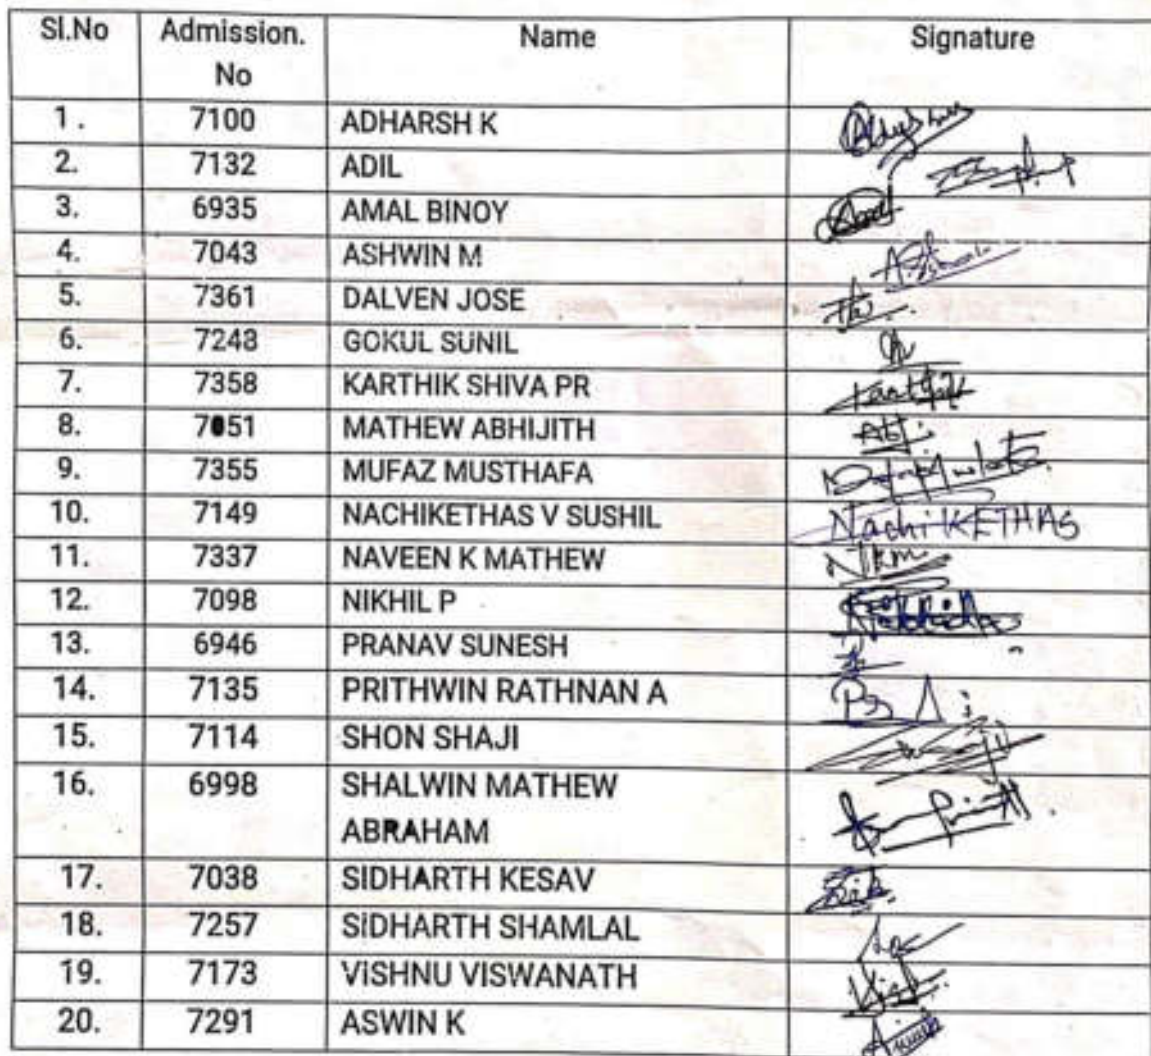 Sl.No Admission. No Name Signature
1. 7100 ADHARSH K
2. 7132 ADIL
3. 6935 AMAL BINOY
4. 7043 ASHWIN M
5. 7361 DALVEN JOSE
6. 7248 GOKUL SUNIL
7. 7358 KARTHIK SHIVA PR Karthik
8. 7051 MATHEW ABHIJITH Abj.
9. 7355 MUFAZ MUSTHAFA
10. 7149 NACHIKETHAS V SUSHIL NachiKETHAS
11. 7337 NAVEEN K MATHEW NKM
12. 7098 NIKHIL P
13. 6946 PRANAV SUNESH
14. 7135 PRITHWIN RATHNAN A
15. 7114 SHON SHAJI
16. 6998 SHALWIN MATHEW
ABRAHAM
17. 7038 SIDHARTH KESAV
18. 7257 SIDHARTH SHAMLAL
19. 7173 VISHNU VISWANATH
20. 7291 ASWIN K